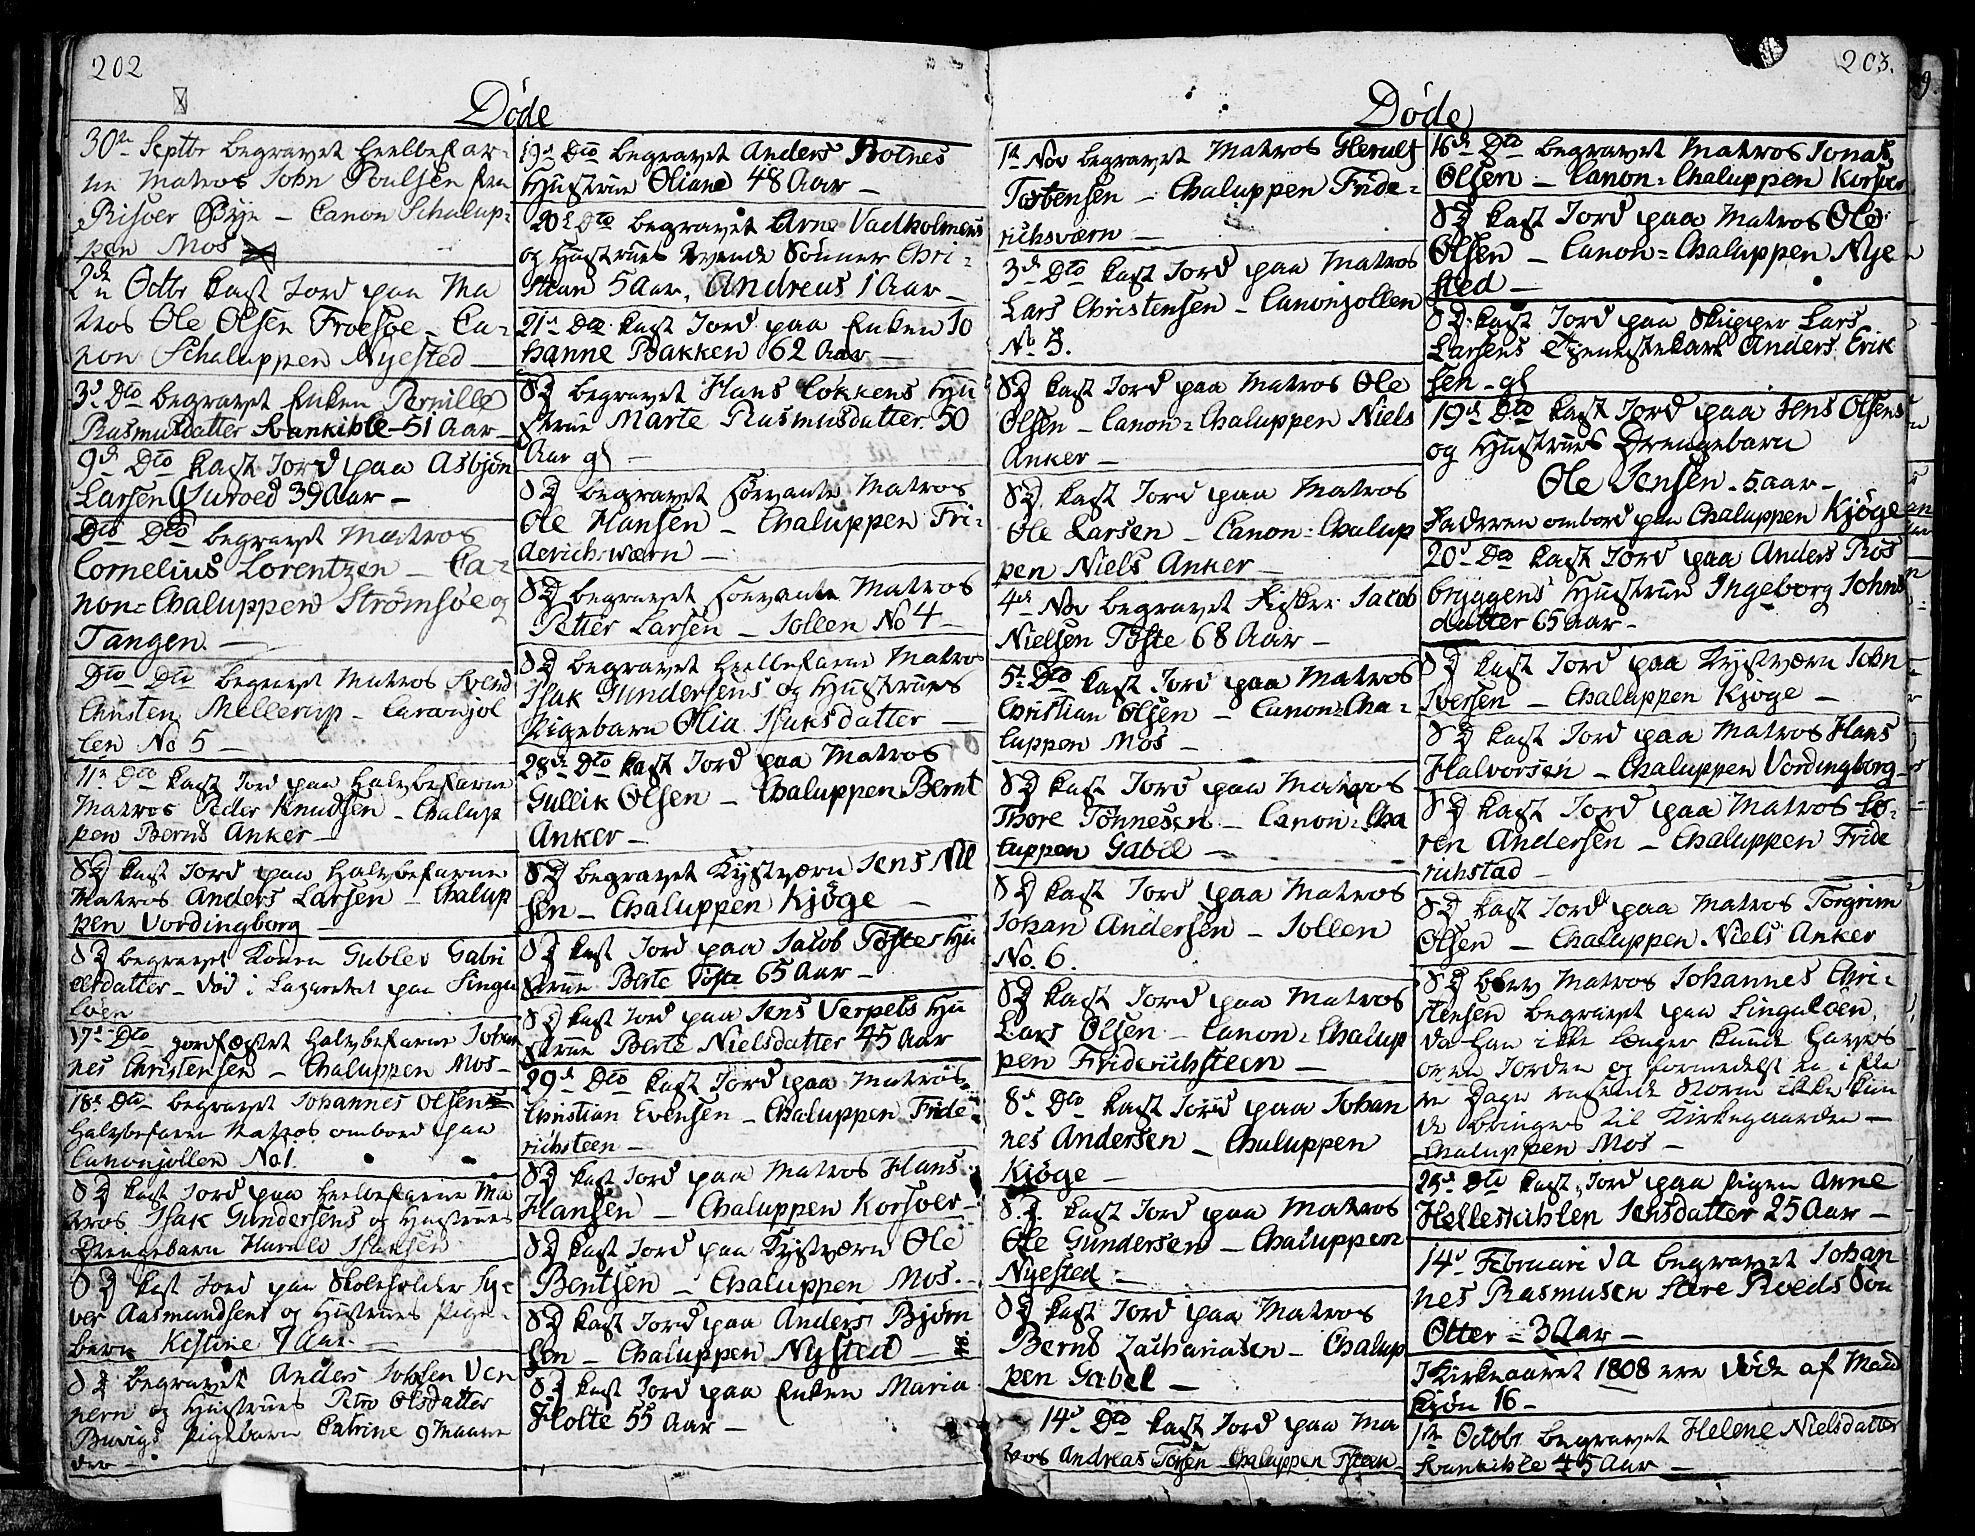 202
Døde
30te Septbr begravet heelbefar-
ne Matros John Poulsen fra
Risøer Bye – Canon Schalup-
pen Mos
2den Octbr kast Jord paa Ma
tros Ole Olsen Froesøe – Ca-
non Schaluppen Nyested –
3d Dto begravet Enken Pernille
Rasmusdatter Krankible 51 Aar –
9d Dto kast Jord paa Asbjøn
Larsen Guroed 39 Aar –
Dto Dto begravet Matros
Cornelius Lorentzen – Ca-
non-Chaluppen Strømsøe og
Tangen. –
Dto Dto begravet Matros Svend
Christen Mellerup – Canonjol
len No 5 –
11te Dto kast Jord paa halvbefarne
Matros Peder Knudsen – Chalup
pen Bernt Anker –
SD kast Jord paa halvbefarne
Matros Anders Larsen – Chalup
pen Vordingborg –
SD begravet Konen Gublev Gabri
elsdatter – død i Lazarettet paa Singu
løen
17d Dto jordfæstet halvbefarne Johan
nes Christensen – Chaluppen Mos –
18d Dto begravet Johannes Olsen
halvbefaren Matros ombord paa
Canonjollen No 1.
SD kast Jord paa heelbefarne Ma
tros Isak Gundersens og Hustrues
Drengebarn Harald Isaksen
SD kast Jord paa Skoleholder Sy-
ver Aasmundsens og Hustrues Pige-
barn Kistine 7 Aar –
SD begravet Anders Johsen Ven
pern og Hustrues Petro Olsdatter
Buvigs Pigebarn Catrine 9 Maane
der –
19d Dto begravet Anders Botnes
Hustrue Oliane 48 Aar –
20d Dto begravet Arne Vadholmens
og Hustrues tvende Sønner Chri-
stian 5 Aar, Andreas 1 Aar –
21d Dto kast Jord paa Enken Jo
hanne Bakken 62 Aar –
SD begravet Hans Løkkens Hu
strue Marte Rasmusdatter 50
Aar gl –
SD begravet forvante Matros
Ole Hansen – Chaluppen Fri-
derichsværn –
SD begravet forvante Matros
Petter Larsen – Jollen No 4 –
SD begravet heelbefarne Matros
Isak Gundersens og Hustrues
Pigebarn Olia Isaksdatter –
28d Dto kast Jord paa Matros
Gullik Olsen – Chaluppen Bernt
Anker –
SD begravet Kystværn Jens Nil
sen – Chaluppen Kjøge –
SD kast Jord paa Jacob Tøstes Hu
strue Berte Tøste 65 Aar –
SD kast Jord paa Jens Verpets Hu
strue Berte Nielsdatter 45 Aar
29d Dto kast Jord paa Matros
Christian Evensen – Chaluppen Fride
richsteen –
SD kast Jord paa Matros Hans
Hansen – Chaluppen Korsøer –
SD kast Jord paa Kystværn Ole
Bentsen – Chaluppen Mos. –
SD kast Jord paa Anders Bjørn
sen – Chaluppen Nysted –
SD kast Jord paa Enken Maria
Holte 55 Aar –
203.
Døde
1te Nov begravet Matros Herulf
Torbensen – Chaluppen Fride-
richsværn –
3d Dto kast Jord paa Matros
Lars Christensen – Canonjollen
No 5.
SD kast Jord paa Matros Ole
Olsen – Canon-Chaluppen Niels
Anker –
SD kast Jord paa Matros
Ole Larsen – Canon-Chalup
pen Niels Anker –
4de Nov begravet Fisker Jacob
Nielsen Tøste 68 Aar –
5te Dto kast Jord paa Matros
Christian Olsen – Canon-Cha-
luppen Mos –
SD kast Jord paa Matros
Thore Tønnesen – Canon-Cha
luppen Gabel –
SD kast Jord paa Matros
Johan Andersen – Jollen
No. 6.
SD kast Jord paa Matros
Lars Olsen – Canon-Chalup
pen Friderichsteen –
8d Dto kast Jord paa Johan
nes Andersen – Chaluppen
Kjøge –
S.D. kast Jord paa Matros
Ole Gundersen – Chaluppen
Nyested –
SD kast Jord paa Matros
Bernt Zachariasen – Chalup
pen Gabel –
14d Dto kast Jord paa Ma
tros Andreas Torsen Chaluppen Fsteen
16d Dto begravet Matros Jonas
Olsen – Canon-Chaluppen Korsøer
SD kast Jord paa Matros Ole
Olsen – Canon-Chaluppen Nye
sted –
SD kast Jord paa Skipper Lars
Larsens Tjenestekarl Anders Erik
sen – gl
19d Dto kast Jord paa Jens Olsens
og Hustrues Drengebarn
Ole Jensen – 5 aar –
Faderen ombord paa Chaluppen Kjøge
20d Dto kast Jord paa Anders Ros
bryggens Hustrue Ingeborg Johns
datter 65 aar –
SD kast Jord paa Kystværn John
Iversen – Chaluppen Kjøge –
SD kast Jord paa Matros Hans
Halvorsen – Chaluppen Vordingborg –
SD kast Jord paa Matros Sø-
ren Andersen – Chaluppen Fride
richstad –
SD kast Jord paa Matros Torgrim
Olsen – Chaluppen Niels Anker
SD blev Matros Johannes Chri-
stensen begravet paa Singuløen,
da han ikke længer kunde haves
oven Jorden og formedelst en i fle
re Dage rasende Storm ikke kun
de bringes til Kirkegaarden –
Chaluppen Mos –
25d Dto kast Jord paa Pigen Anne
Helleskihlen Jensdatter 25 Aar –
14d Februari da begravet Johan
nes Rasmusen Store Roeds Søn
Otter – 3 Aar –
I Kirkeaaret 1808 ere døde af Mand
kjøn 16 –
1te Octobr begravet Helene Nielsdatter
Krankible 45 Aar –